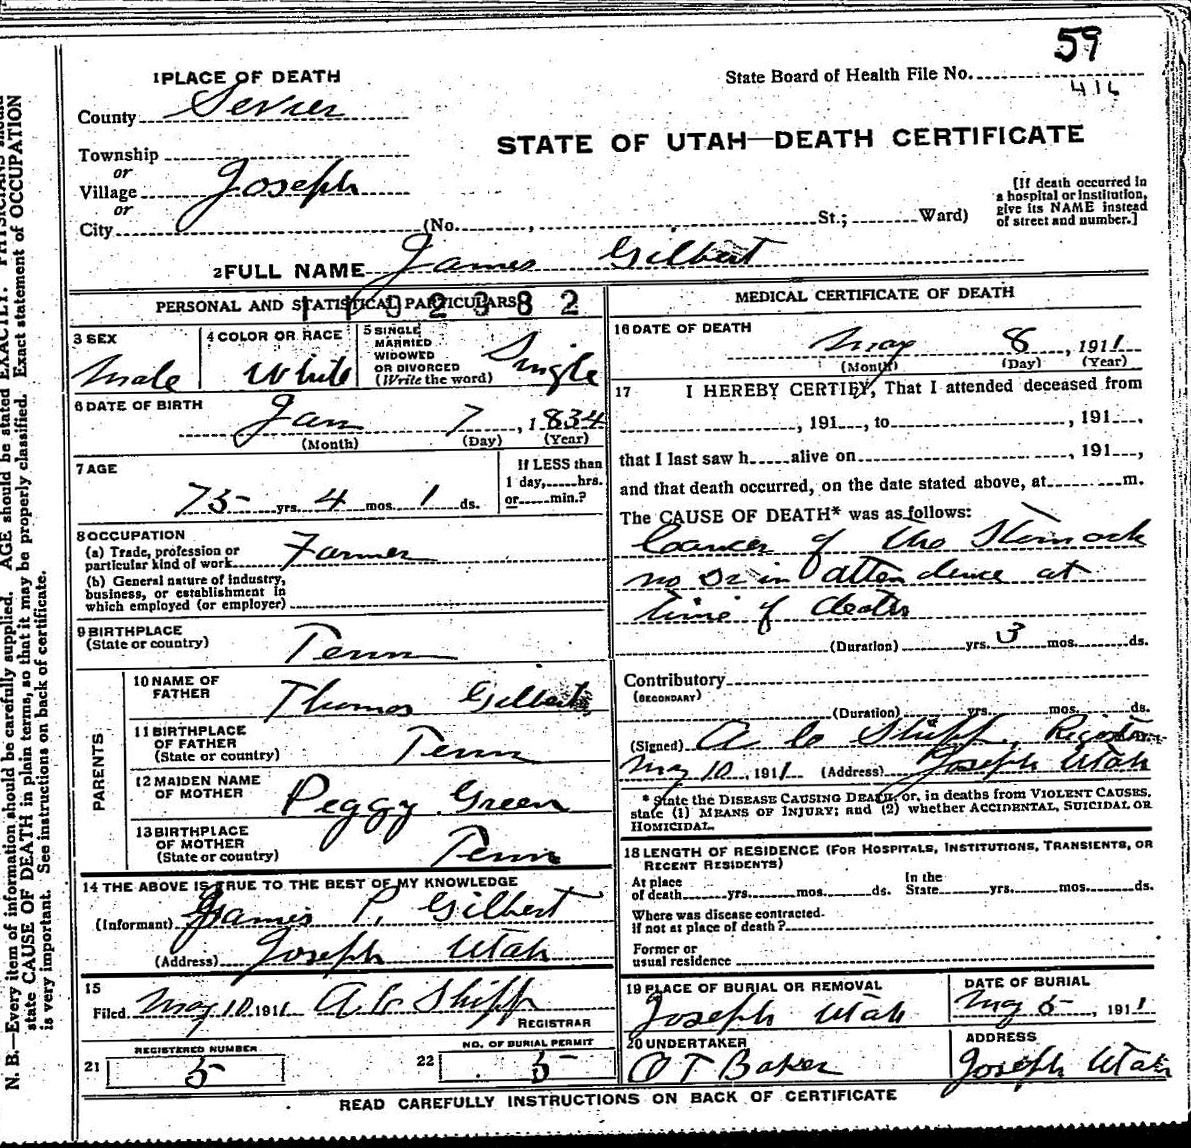 59
1 PLACE OF DEATH
State Board of Health File No.
416
County Sevier
STATE OF UTAH—DEATH CERTIFICATE
Township
or
Village Joseph
or
City (No. , St.; Ward)
[If death occurred in
a hospital or institution,
give its NAME instead
of street and number.]
2 FULL NAME James Gilbert
PERSONAL AND STATISTICAL PARTICULARS
3 SEX
Male
4 COLOR OR RACE
White
5 SINGLE
MARRIED
WIDOWED
OR DIVORCED
(Write the word)
Single
6 DATE OF BIRTH
Jan 7, 1834
(Month) (Day) (Year)
7 AGE
75 yrs. 4 mos. 1 ds.
If LESS than
1 day, hrs.
or min.?
8 OCCUPATION
(a) Trade, profession or
particular kind of work Farmer
(b) General nature of industry,
business, or establishment in
which employed (or employer)
9 BIRTHPLACE
(State or country) Tenn
PARENTS
10 NAME OF
FATHER Thomas Gilbert
11 BIRTHPLACE
OF FATHER
(State or country) Tenn
12 MAIDEN NAME
OF MOTHER Peggy Green
13 BIRTHPLACE
OF MOTHER
(State or country) Tenn
14 THE ABOVE IS TRUE TO THE BEST OF MY KNOWLEDGE
(Informant) James P. Gilbert
(Address) Joseph Utah
15
Filed May 10 1911 A C Shipp
REGISTRAR
REGISTERED NUMBER
21 5
NO. OF BURIAL PERMIT
22 5
MEDICAL CERTIFICATE OF DEATH
16 DATE OF DEATH
May 8, 1911
(Month) (Day) (Year)
17 I HEREBY CERTIFY, That I attended deceased from
, 191 , to , 191 ,
that I last saw h alive on , 191 ,
and that death occurred, on the date stated above, at m.
The CAUSE OF DEATH* was as follows:
Cancer of the Stomach
no Dr in attendence at
time of death
(Duration) yrs. 3 mos. ds.
Contributory
(SECONDARY)
(Duration) yrs. mos. ds.
(Signed) A C Shipp, Registrar
May 10, 1911 (Address) Joseph Utah
* State the DISEASE CAUSING DEATH, or, in deaths from VIOLENT CAUSES,
state (1) MEANS OF INJURY; and (2) whether ACCIDENTAL, SUICIDAL OR
HOMICIDAL.
18 LENGTH OF RESIDENCE (FOR HOSPITALS, INSTITUTIONS, TRANSIENTS, OR
RECENT RESIDENTS)
At place
of death yrs. mos. ds.
In the
State yrs. mos. ds.
Where was disease contracted.
If not at place of death?
Former or
usual residence
19 PLACE OF BURIAL OR REMOVAL
Joseph Utah
DATE OF BURIAL
May 5, 1911
20 UNDERTAKER
O T Baker
ADDRESS
Joseph Utah
READ CAREFULLY INSTRUCTIONS ON BACK OF CERTIFICATE
N. B.—Every item of information should be carefully supplied. AGE should be stated EXACTLY. PHYSICIANS should
state CAUSE OF DEATH in plain terms, so that it may be properly classified. Exact statement of OCCUPATION
is very important. See instructions on back of certificate.